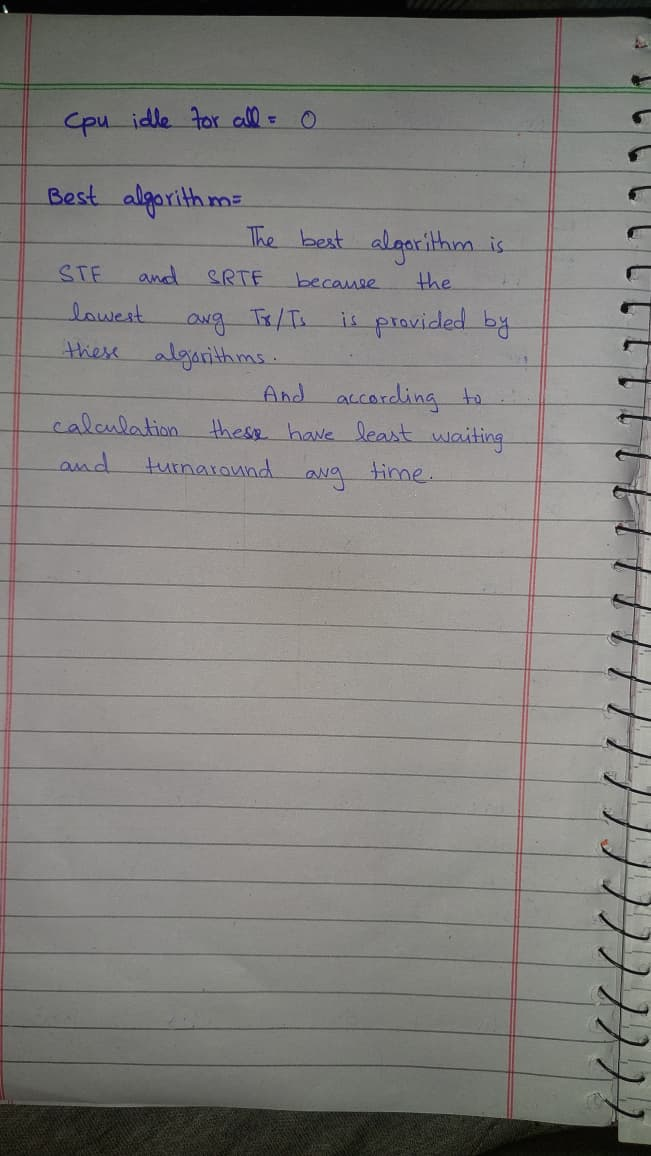 Cpu idle for all = 0
Best algorithm=
The best algorithm is
STF and SRTF because the
lowest avg Tr/Ts is provided by
these algorithms.
And according to
calculation these have least waiting
and turnaround avg time.